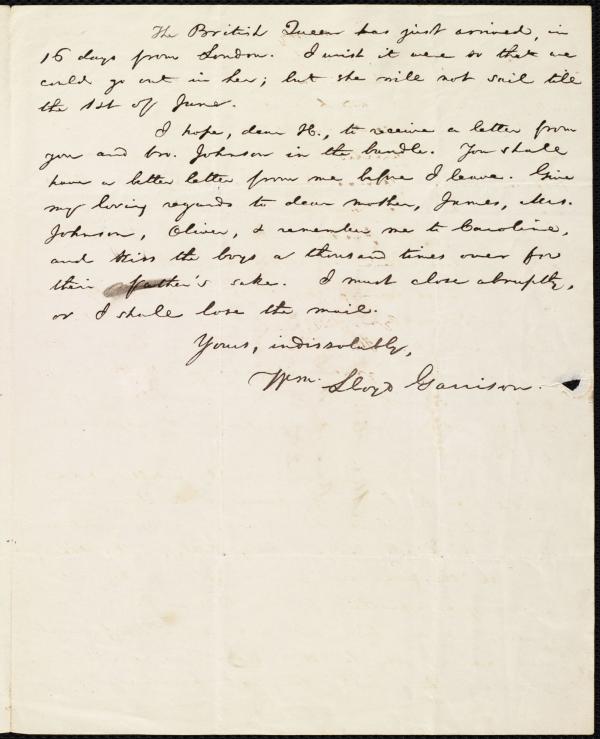 The British Queen has just arrived, in
16 days from London. I wish it were so that we
could go out in her; but she will not sail till
the 1st of June.
I hope, dear H., to receive a letter from
you and bro. Johnson in the bundle. You shall
have a better letter from me before I leave. Give
my loving regards to dear mother, James, Mrs.
Johnson, Oliver, & remember me to Caroline,
and kiss the boys a thousand times over for
their father's sake. I must close abruptly,
or I shall lose the mail.
Yours, indissolubly,
Wm. Lloyd Garrison.